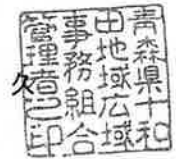 青森県十和
田地域広域
事務組合
管理者之印
久